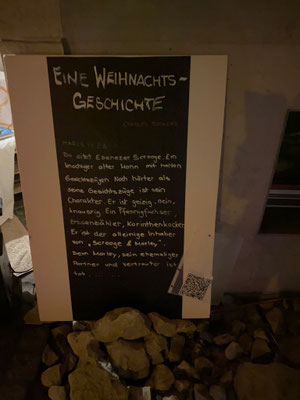 EINE WEIHNACHTS-
GESCHICHTE
Da sitzt Ebenezer Scrooge. Ein
alter Mann mit harten
Gesichtszügen. Noch härter als
seine Gesichtszüge ist sein
Charakter. Er ist geizig, nein,
knausrig. Ein Pfennigfuchser,
Erbsenzähler, Korinthenkacker.
Er ist der alleinige Inhaber
von „Scrooge & Marley".
Denn Marley, sein ehemaliger
Partner und Vertrauter ist
tot